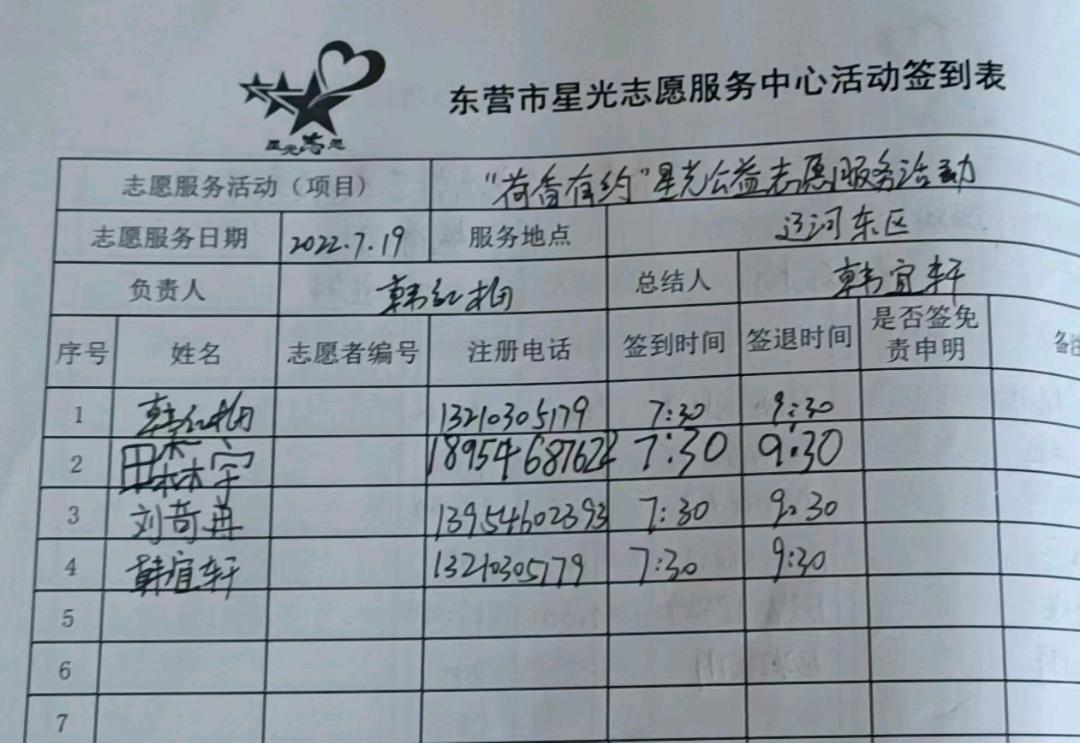 东营市星光志愿服务中心活动签到表
星光志愿
志愿服务活动（项目） “荷香有约”星光公益志愿服务活动
志愿服务日期 2022.7.19 服务地点 辽河东区
负责人 韩红梅 总结人 韩宜轩
序号 姓名 志愿者编号 注册电话 签到时间 签退时间 是否签免责申明 备注
1 韩红梅 13210305179 7:30 9:30
2 田森宇 18954687622 7:30 9:30
3 刘奇冉 13954602393 7:30 9:30
4 韩宜轩 13210305179 7:30 9:30
5
6
7